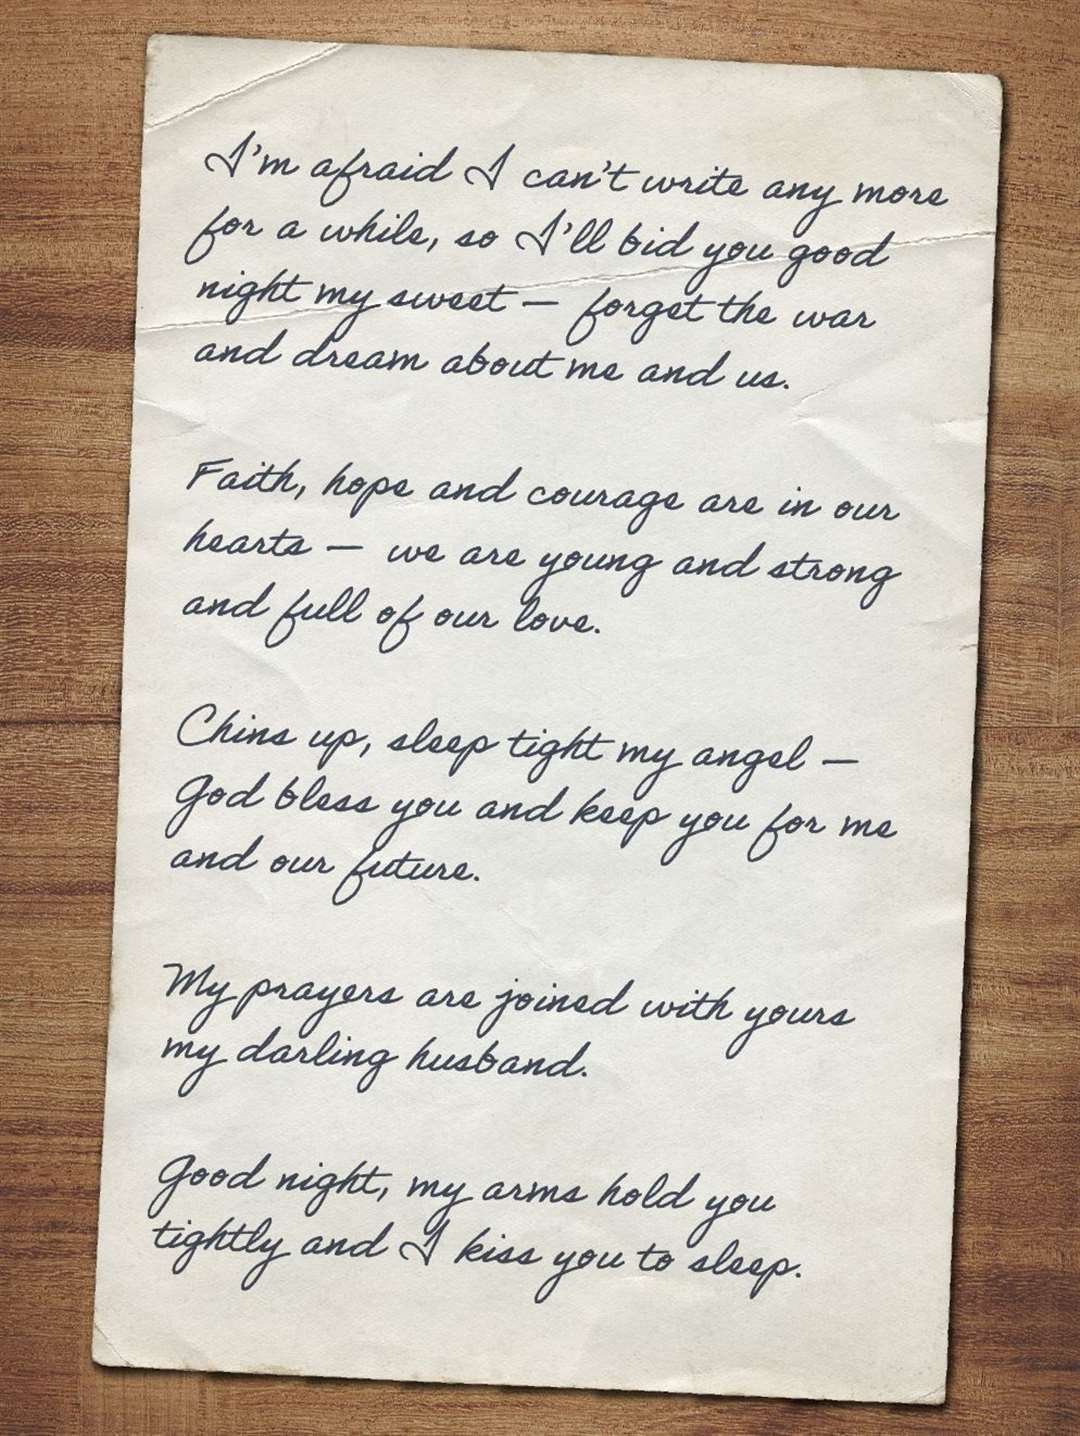 I'm afraid I can't write any more
for a while, so I'll bid you good
night my sweet – forget the war
and dream about me and us.
Faith, hope and courage are in our
hearts – we are young and strong
and full of our love.
Chins up, sleep tight my angel –
God bless you and keep you for me
and our future.
My prayers are joined with yours
my darling husband.
Good night, my arms hold you
tightly and I kiss you to sleep.